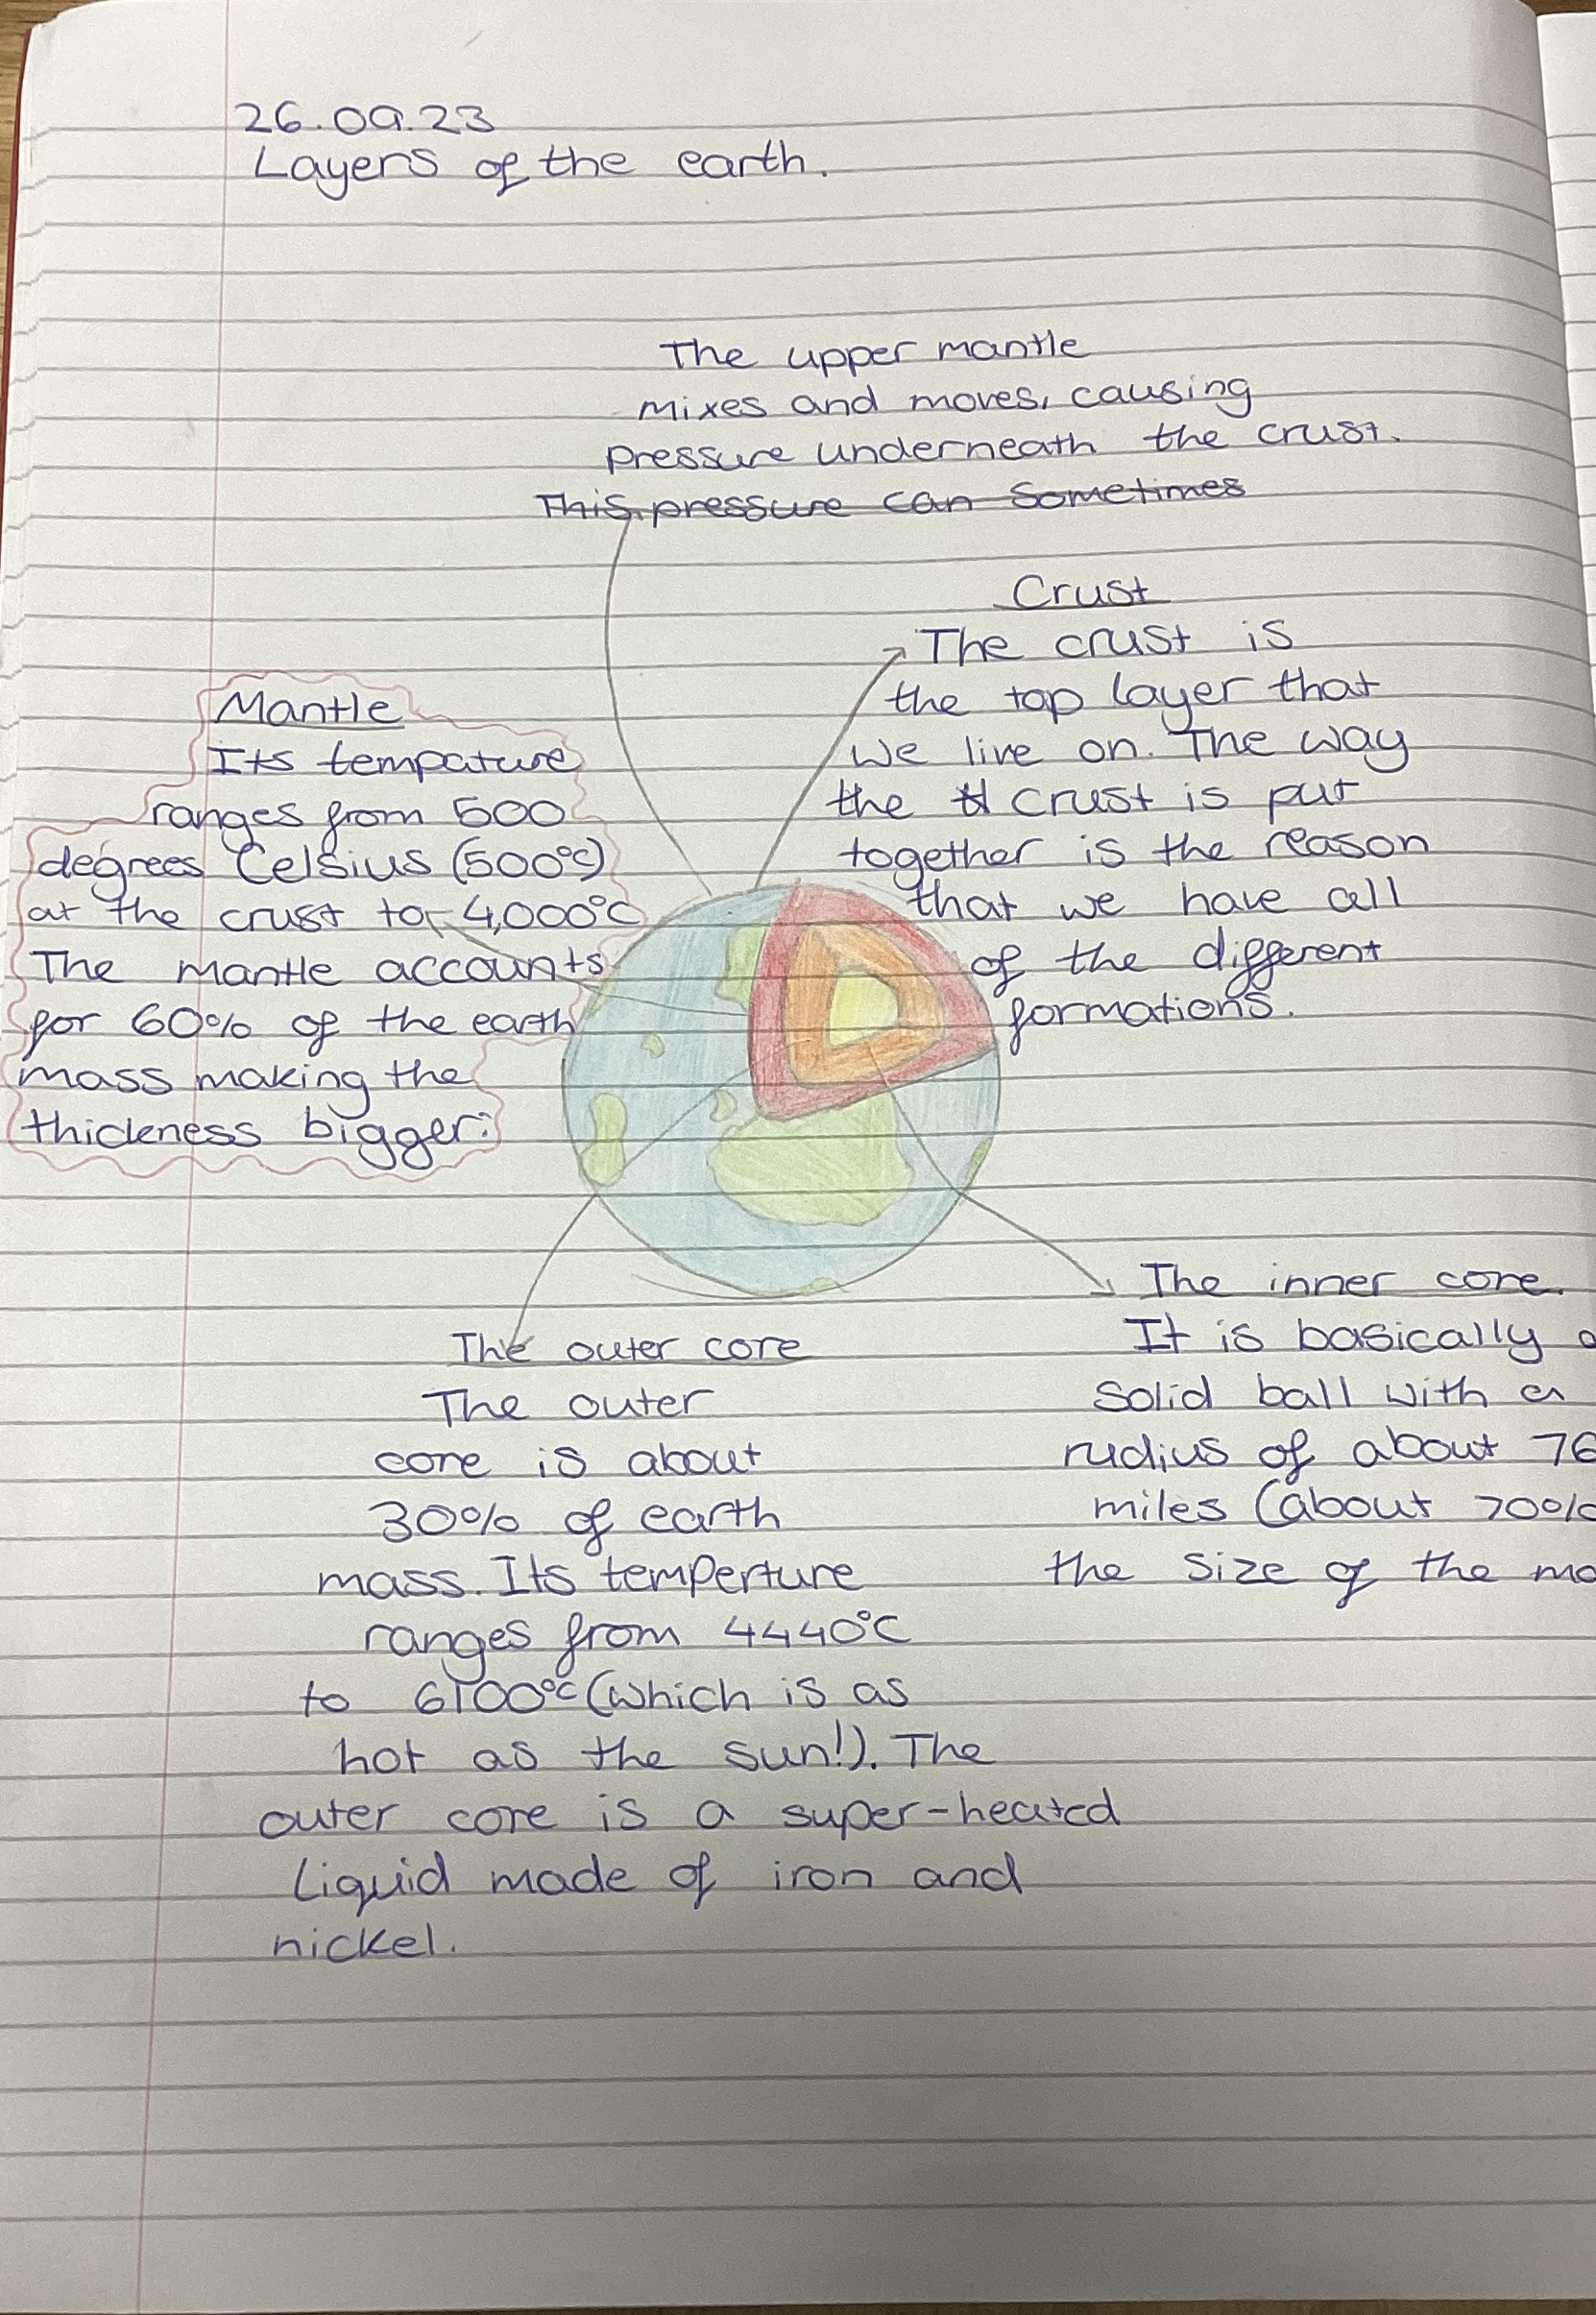 26.09.23
Layers of the earth.
The upper mantle
mixes and moves, causing
pressure underneath the crust.
This pressure can sometimes
Crust
The crust is
the top layer that
we live on. The way
the crust is put
together is the reason
that we have all
of the different
formations.
Mantle
Its tempature
ranges from 500
degrees Celsius (500°C)
at the crust to 4,000°C
The mantle accounts
for 60% of the earth
mass making the
thickness bigger.
The outer core
The outer
core is about
30% of earth
mass. Its temperture
ranges from 4440°C
to 6100°C (which is as
hot as the sun!). The
outer core is a super-heated
liquid made of iron and
nickel.
The inner core.
It is basically a
solid ball with a
radius of about 76
miles (about 70%
the size of the mo